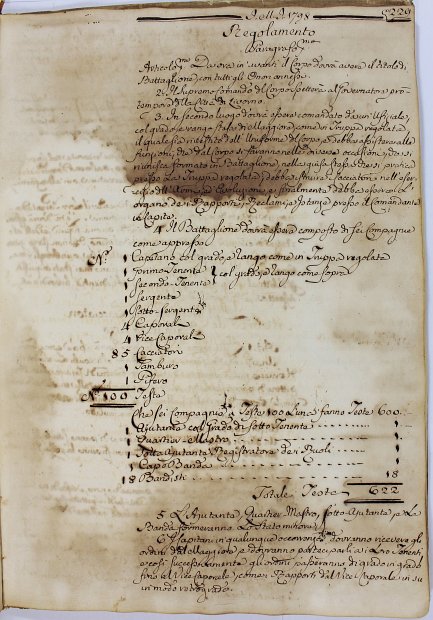 Nell A. 1798 220
Regolamento
Paragrafo P.mo
Articolo P.mo Da ora in avanti il Corpo dovrà avere il titolo di
Battaglione, con tutti gli Onori annessi.
2. Il Supremo Comando del Corpo spetterà al Governatore pro
tempore della Città di Livorno.
3. In secondo luogo dovrà essere comandato da un Ufiziale,
col grado, e rango stesso di Maggiore, come in Truppa regolata
il quale sia rivestito dell' Uniforme del Corpo, e debba assistere alle
funzioni, che dal Corpo si faranno nelle diverse occasioni, che si
riunisca formato in Battaglione, nella guisa stessa che si pratica
presso la Truppa regolata; debba istruire i Cacciatori nell' eser-
cizio dell' Armi, ed Evoluzioni, e finalmente debba essere
organo dei Rapporti, Reclami, Istanze presso il Comandante
in Capite.
4. Il Battaglione dovrà essere composto di sei Compagnie
come appresso
N.° 1 Capitano col grado, e rango come in Truppa regolata
1 primo Tenente
1 Secondo Tenente } col grado, e rango come sopra
1 Sergente
1 Sotto-Sergente
4 Caporali
4 Vice Caporali
85 Cacciatori
1 Tamburo
1 Pifero
N.° 100 Teste
Che sei Compagnie di Teste 100 l'una fanno Teste 600.
1 Ajutante col Grado di Sotto Tenente 1.
1 Quartier-Mastro 1.
1 Sotto Ajutante, Registratore dei Ruoli 1.
1 Capo Banda 1.
18 Bandisti 18
Totale Teste 622
5. L'Ajutante, Quartier Mastro, Sotto-Ajutante, e la
Banda formeranno lo Stato minore.
6. I Capitani in qualunque occorrenza dovranno ricevere gli
ordini dal Maggiore, e dovranno parteciparli ai loro Tenenti,
e così successivamente gli ordini passeranno di grado in grado
fino ai Vice Caporali, come i Rapporti dal Vice Caporale in su
in modo retrogrado.